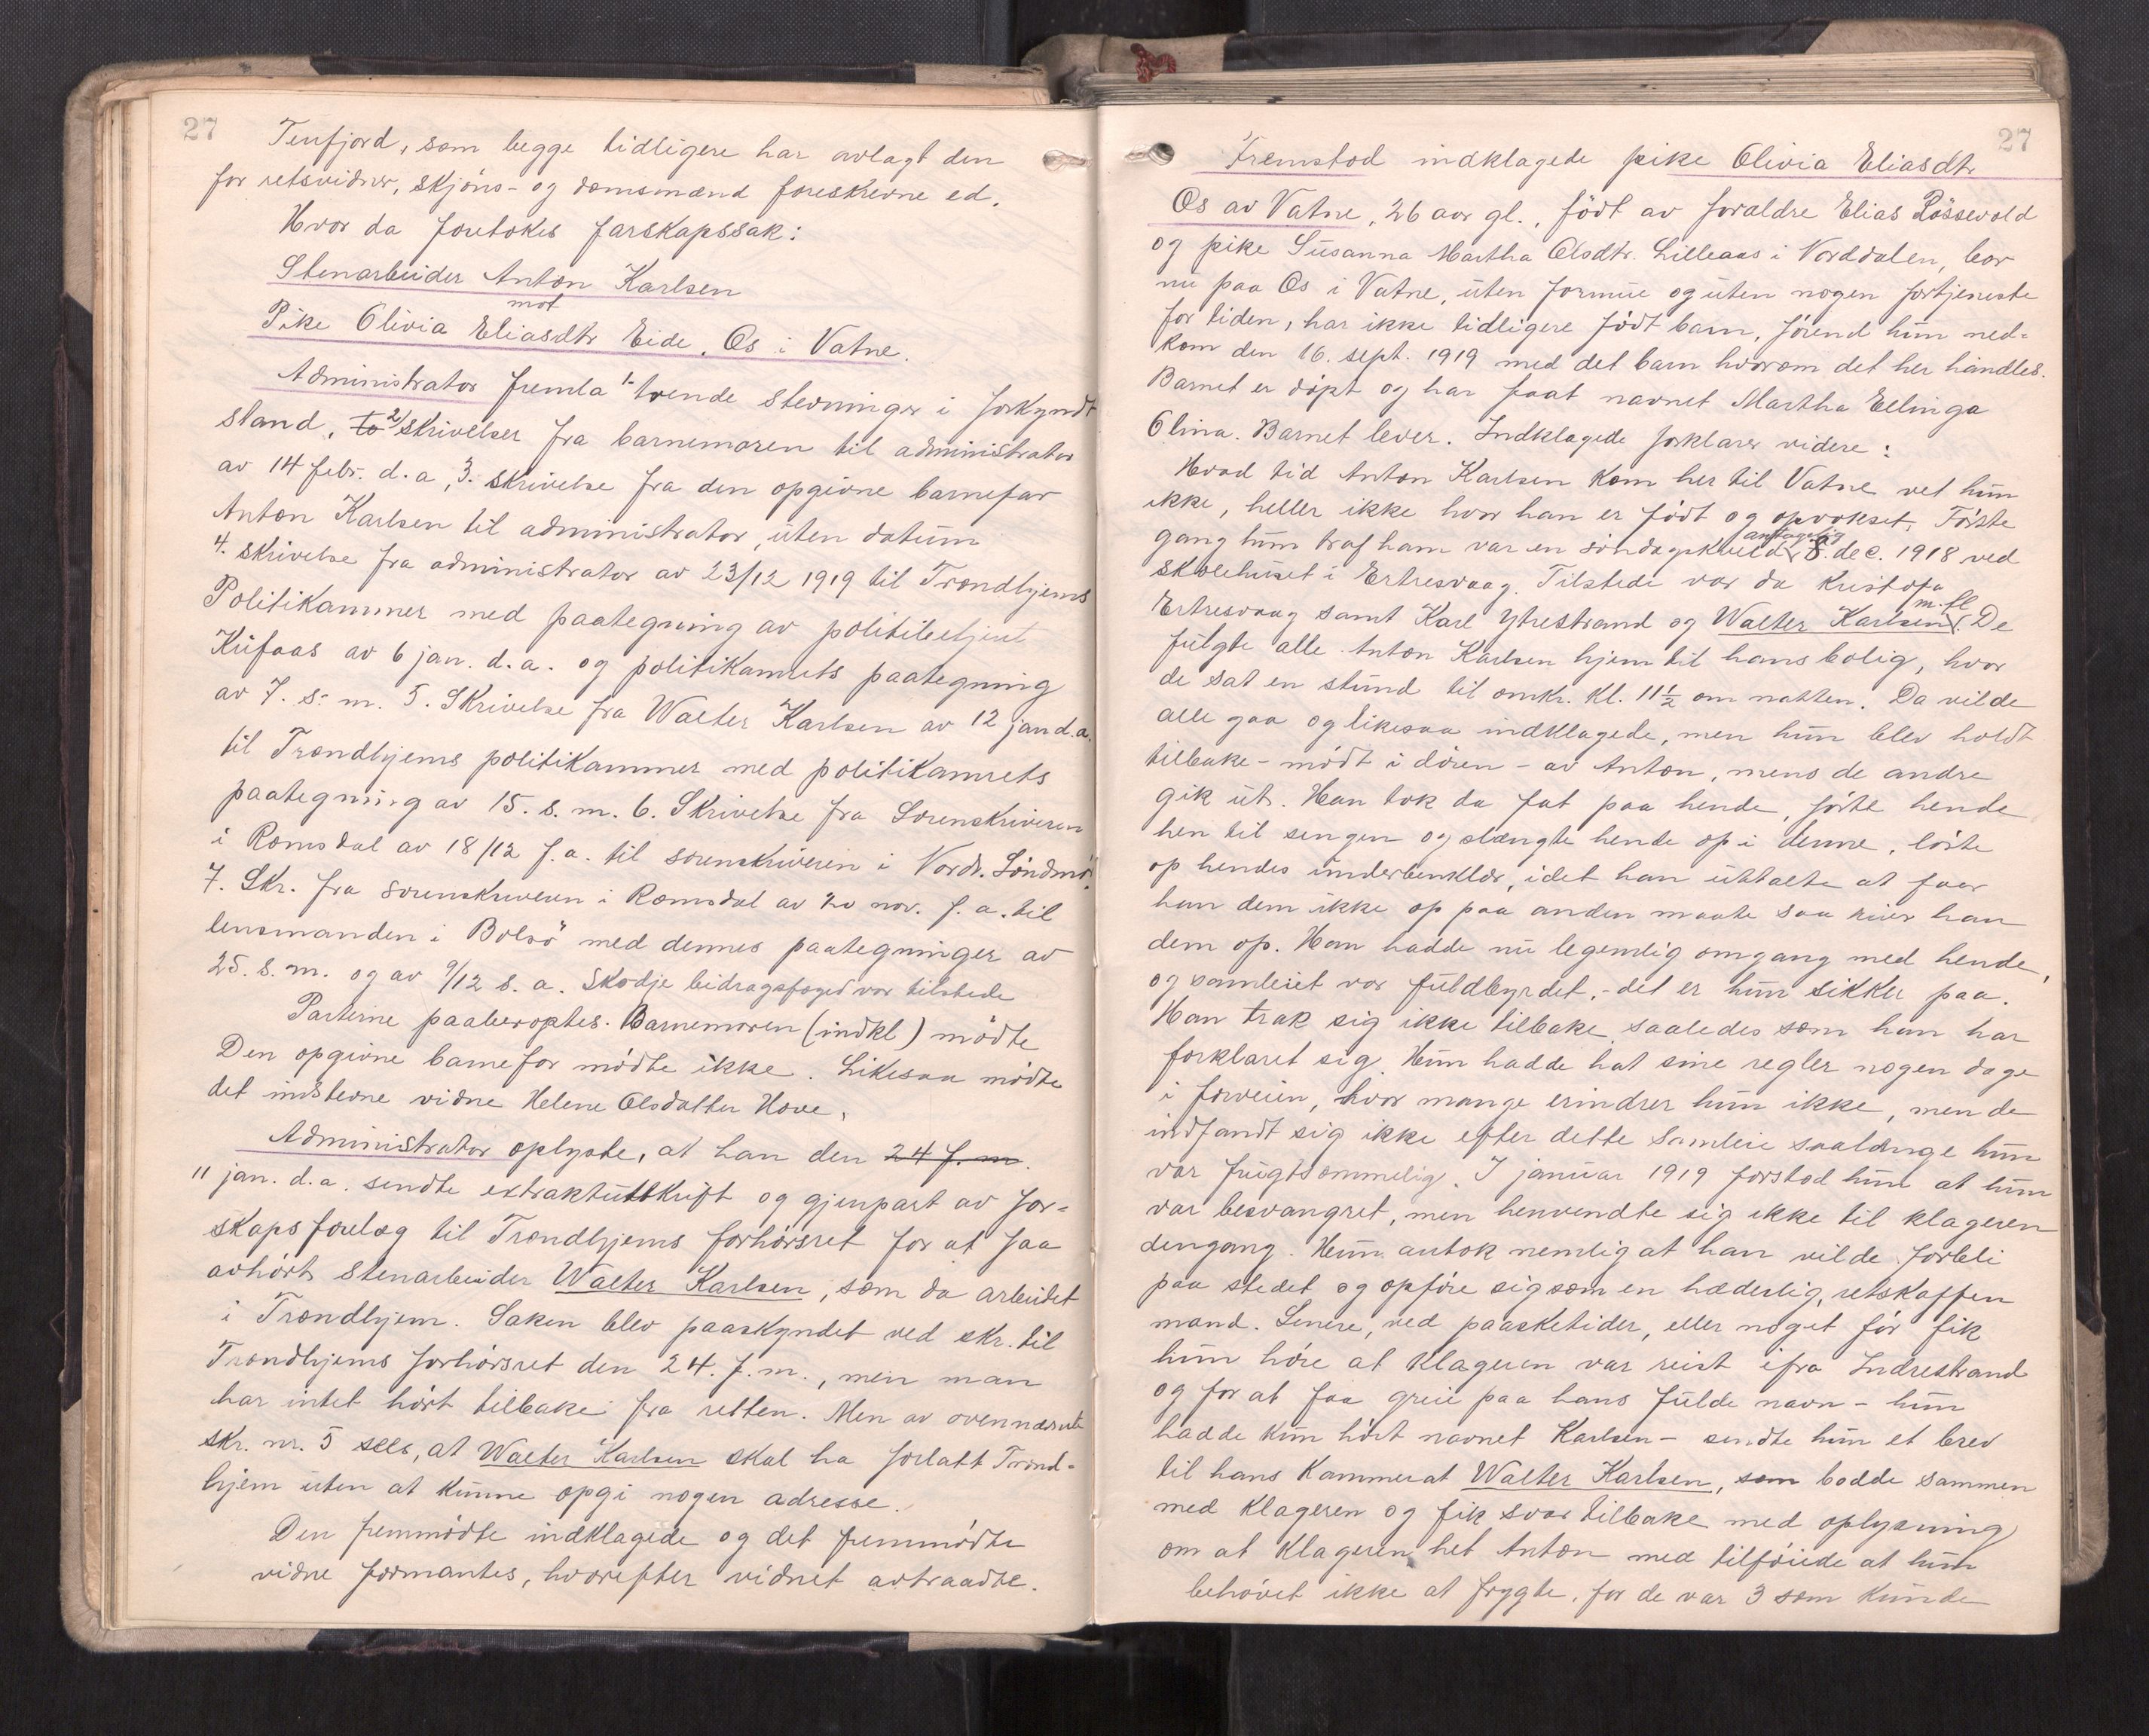 27
Tenfjord, som begge tidligere har avlagt den
for retsvidner, skjöns- og domsmænd foreskrevne ed.
Hvor da foretokes farskapssak:
Stenarbeider Anton Karlsen
mot
Pike Olivia Eliasdtr Eide, Os i Vatne.
Administrator fremla 1- tvende stevninger i forkyndt
stand, to 2/ skrivelser fra barnemoren til administrator
av 14 febr. d.a, 3. skrivelse fra den opgivne barnefar
Anton Karlsen til administrator, uten datum
4. skrivelse fra administrator av 23/12 1919 til Trondhjems
Politikammer med paategning av politibetjent
Kufaas av 6 jan. d.a. og politikamrets paategning
av 7. s. m. 5. Skrivelse fra Walter Karlsen av 12 jan d.a.
til Trondhjems politikammer med politikamrets
paategning av 15. s. m. 6. Skrivelse fra Sorenskriveren
i Romsdal av 18/12 f.a. til sorenskriveren i Nordr. Söndmör.
7. Skr. fra sorenskriveren i Romsdal av 20 nov. f.a. til
lensmanden i Bolsö med dennes paategninger av
25. s. m. og av 9/12 s. a. Skodje bidragsfoged var tilstede
Parterne paaberoptes. Barnemoren (indkl) mödte
Den opgivne barnefar mödte ikke. Likesaa mödte
det indstevne vidne Helene Olsdatter Hove.
Administrator oplyste, at han den 24 f. m.
11 jan. d.a. sendte extraktutskrift og gjenpart av far-
skapsforelæg til Trondhjems forhörsret for at faa
avhört stenarbeider Walter Karlsen, som da arbeidet
i Trondhjem. Saken blev paaskyndet ved skr. til
Trondhjems forhörsret den 24. f. m., men man
har intet hört tilbake fra retten. Men av ovennævnte
skr. nr. 5 sees, at Walter Karlsen skal ha forlatt Trond-
hjem uten at kunne opgi nogen adresse.
Den fremmödte indklagede og det fremmödte
vidne formantes, hvorefter vidnet avtraadte.
27
Fremstod indklagede pike Olivia Eliasdtr
Os av Vatne, 26 aar gl., födt av forældre Elias Rössevold
og pike Susanna Martha Olsdtr. Lilleaas i Norddalen, bor
nu paa Os i Vatne, uten formue og uten nogen fortjeneste
for tiden, har ikke tidligere födt barn, förend hun ned-
kom den 16. sept. 1919 med det barn hvorom det her handles.
Barnet er döpt og har faat navnet Martha Ellinga
Olina. Barnet lever. Indklagede forklarer videre:
Hvad tid Anton Karlsen kom her til Vatne vet hun
ikke, heller ikke hvor han er födt og opvokset. Förste
antagelig
gang hun traf ham var en söndagskveld 8. dec. 1918 ved
skolehuset i Ertresvaag. Tilstede var da Kristofa
m. fl
Ertresvaag samt Karl Ytrestrand og Walter Karlsen. De
fulgte alle Anton Karlsen hjem til hans bolig, hvor
de sat en stund til omkr. kl. 11½ om natten. Da vilde
alle gaa og likesaa indklagede, men hun blev holdt
tilbake - mödt i dören - av Anton, mens de andre
gik ut. Han tok da fat paa hende, förte hende
hen til sengen og slængte hende op i denne, löste
op hendes underbenklær, idet han uttalte at faar
han dem ikke op paa anden maate saa river han
dem op. Han hadde nu legemlig omgang med hende,
og samleiet var fuldbyrdet, - det er hun sikker paa.
Han trak sig ikke tilbake saaledes som han har
forklaret sig. Hun hadde hat sine regler nogen dage
i forveien, hvor mange erindrer hun ikke, men de
indfandt sig ikke efter dette samleie saalænge hun
var frugtsommelig. I januar 1919 forstod hun at hun
var besvangret, men henvendte sig ikke til klageren
dengang. Hun antok nemlig at han vilde forbli
paa stedet og opföre sig som en hæderlig, retskaffen
mand. Senere, ved paasketider, eller noget för fik
hun höre at klageren var reist ifra Indrestrand
og for at faa greie paa hans fulde navn - hun
hadde kun hört navnet Karlsen - sendte hun et brev
til hans kammerat Walter Karlsen, som bodde sammen
med klageren og fik svar tilbake med oplysning
om at klageren het Anton med tilföiede at hun
behövet ikke at frygte, for de var 3 som kunde